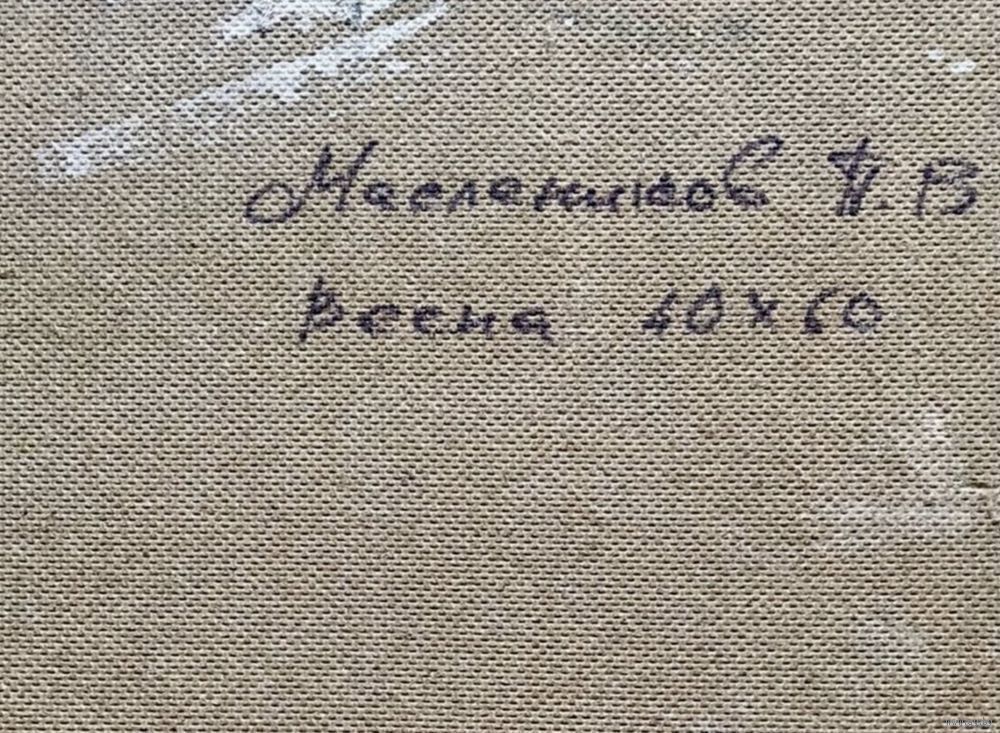 Маслеников В
весна 40х60